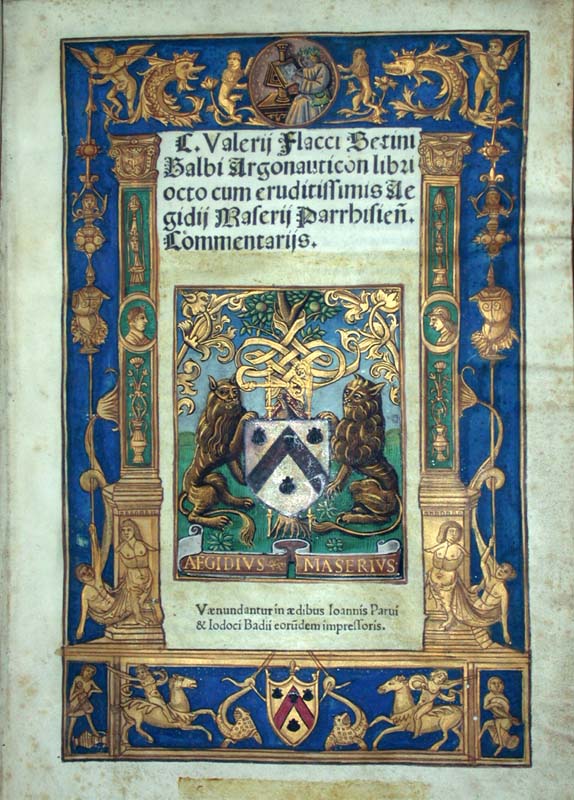 C. Valerij Flacci Setini
Balbi Argonauticôn libri
octo cum eruditissimis Ae
gidij Maserij Parrhisieñ.
Cōmentarijs.
AEGIDIVS MASERIVS
Vænundantur in ædibus Ioannis Parui
& Iodoci Badii eorūdem impressoris.